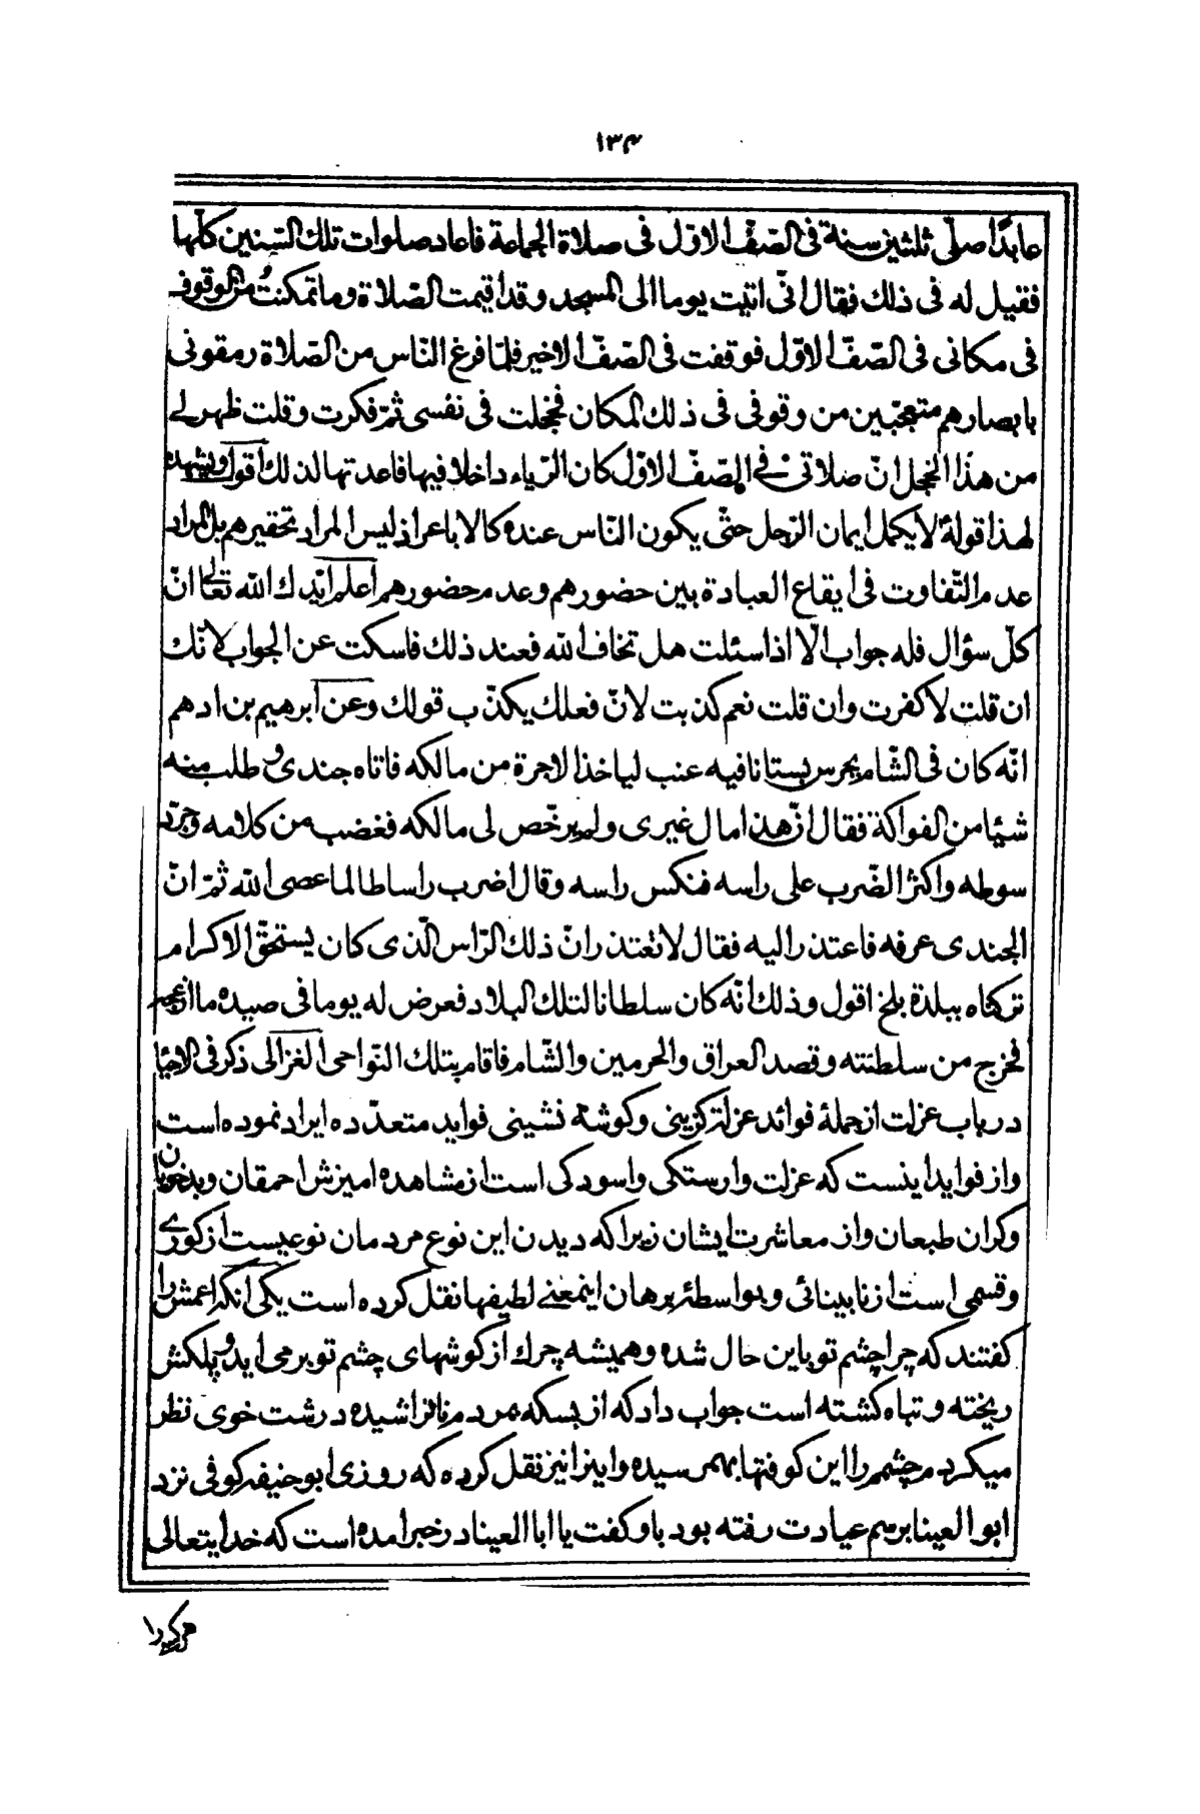 ١٣٤
عابدًا صلّى ثلثين سنة فى الصّفّ الاوّل فى صلاة الجماعة فاعاد صلوات تلك السّنين كلّها
فقيل له فى ذلك فقال انّى اتيت يوما الى المسجد وقد اقيمت الصّلاة وما تمكنتُ من الوقوف
فى مكانى فى الصّفّ الاوّل فوقفت فى الصّفّ الاخير فلمّا فرغ النّاس من الصّلاة رمقونى
بابصارهم متعجّبين من وقوفى فى ذلك المكان فخجلت فى نفسى ثمّ فكرت وقلت ظهر لے
من هذا الخجل انّ صلاتى فے الصّفّ الاوّل كان الرّياء داخلا فيها فاعدتها لذلك اقول ويشهد
لهذا قوله لا يكمل ايمان الرّجل حتّى يكون النّاس عنده كالاباعر اذ ليس المراد تحقيرهم بل المراد
عدم التّفاوت فى ايقاع العبادة بين حضورهم وعدم حضورهم اعلم ايّدك الله تعالى انّ
كلّ سؤال فله جواب الّا اذا سئلت هل تخاف الله فعند ذلك فاسكت عن الجواب لانّك
ان قلت لا كفرت وان قلت نعم كذبت لانّ فعلك يكذّب قولك وعن ابرهيم بن ادهم
انّه كان فى الشّام يحرس بستانا فيه عنب لياخذ الاجرة من مالكه فاتاه جندى و طلب منه
شيئا من الفواكة فقال انّ هذا مال غيرى ولم يرخّص لى مالكه فغضب من كلامه وجرّد
سوطه واكثر الضّرب على راسه فنكس راسه وقال اضرب راسا طالما عصى الله ثمّ انّ
الجندى عرفه فاعتذر اليه فقال لا تعتذر انّ ذلك الرّاس الّذى كان يستحقّ الاكرام
تركناه ببلدة بلخ اقول وذلك انّه كان سلطانا لتلك البلاد فعرض له يوما فى صيده ما ازعجه
فخرج من سلطنته وقصد العراق والحرمين والشّام فاقام بتلك النّواحى الغزالى ذكر فى الاحيا
در باب عزلت از جملۀ فوائد عزلت گزينى وكوشه نشينى فوايد متعدّده ايراد نموده است
واز فوايد اينست كه عزلت وارستكى واسودكى است از مشاهده اميزش احمقان وبدخويان
وكران طبعان واز معاشرت ايشان زيرا كه ديدن اين نوع مردمان نوعيست از كورے
وقسمى است از نابينائى وبواسطۀ برهان اينمعنے لطيفها نقل كرده است يكى انكه اعمش را
كفتند كه چرا چشم تو باين حال شده وهميشه چرك از كوشهاى چشم تو برمى ايد و پلكش
ريخته وتباه كشته است جواب داد كه از بسكه مردم ناتراشيده درشت خوى نظر
ميكردم چشمم را اين كوفتها بهم رسيده واينرا نيز نقل كرده كه روزى ابو حنيفه كوفى نزد
ابو العينا برسم عيادت رفته بود باو كفت يا ابا العينا در خبر امده است كه خدايتعالى
هركسرا